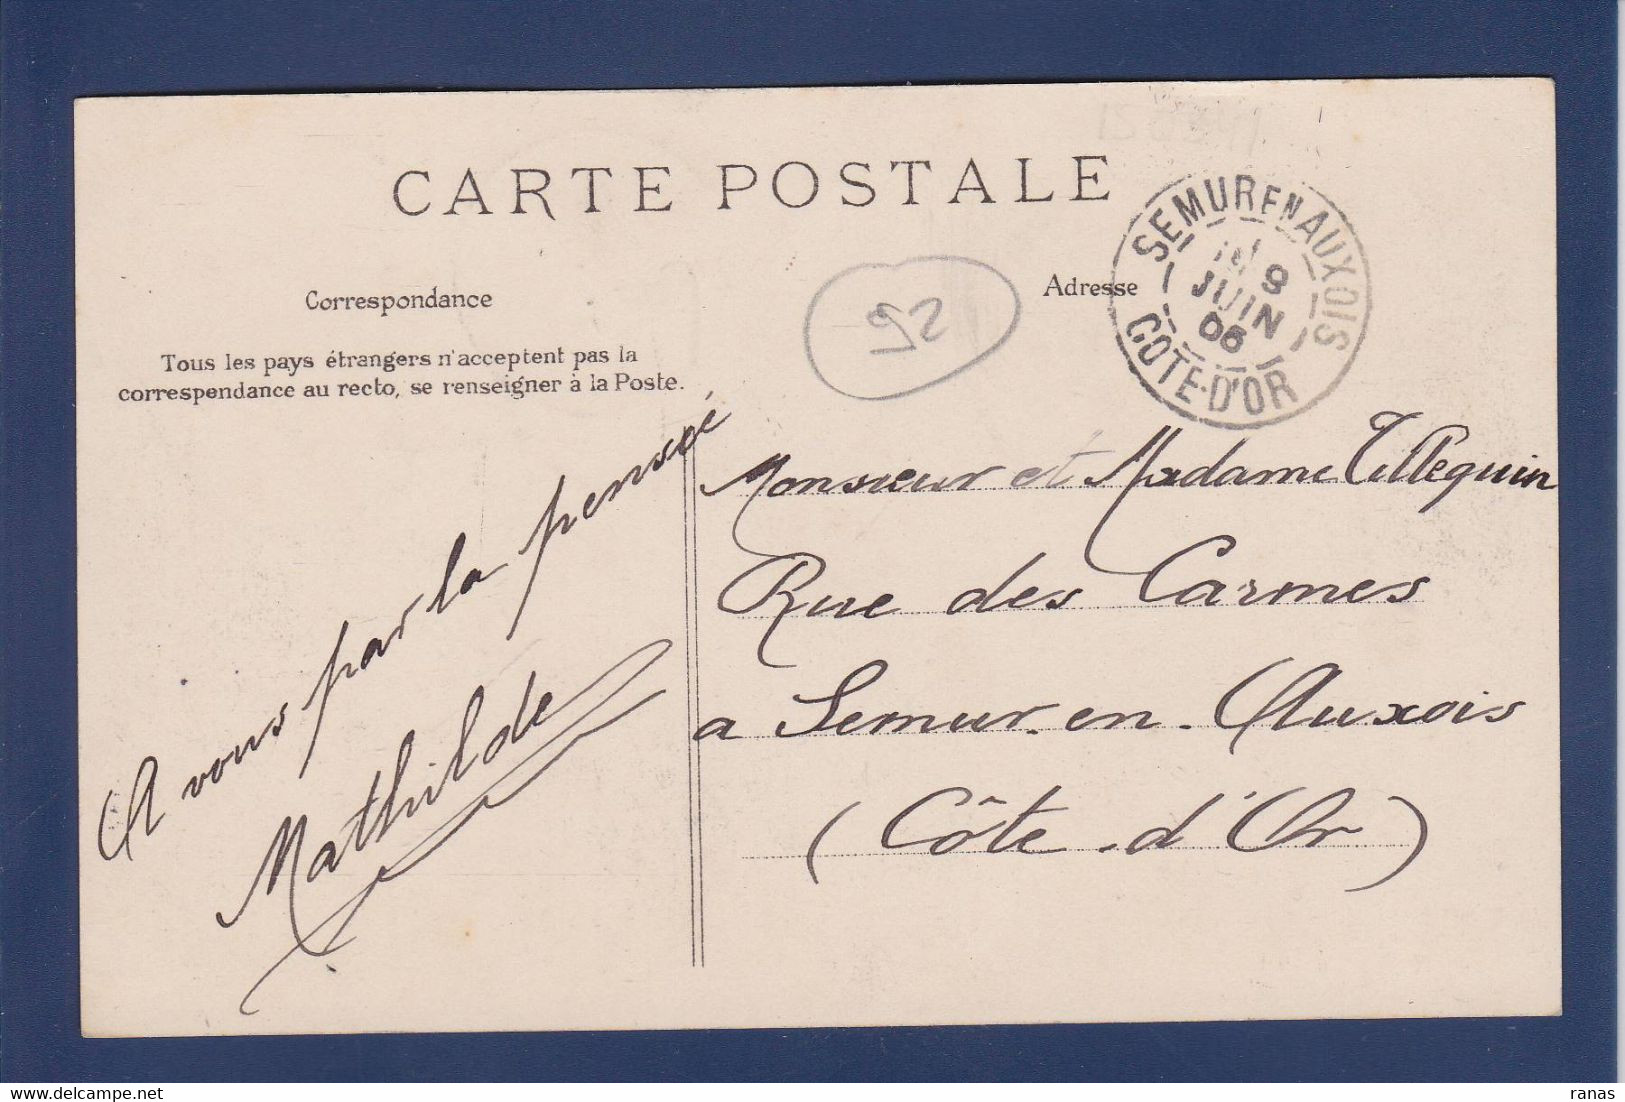 CARTE POSTALE
Correspondance
Tous les pays étrangers n'acceptent pas la
correspendance au recto, se renseigner à la Poste.
Adresse
SEMUR EN AUXOIS
9
JUIN
06
COTE-D'OR
92
A vous par la pensée
Mathilde
Monsieur et Madame Tilleguin
Rue des Carmes
a Semur-en-Auxois
(Côte-d'Or)
delcampe.net
ranas